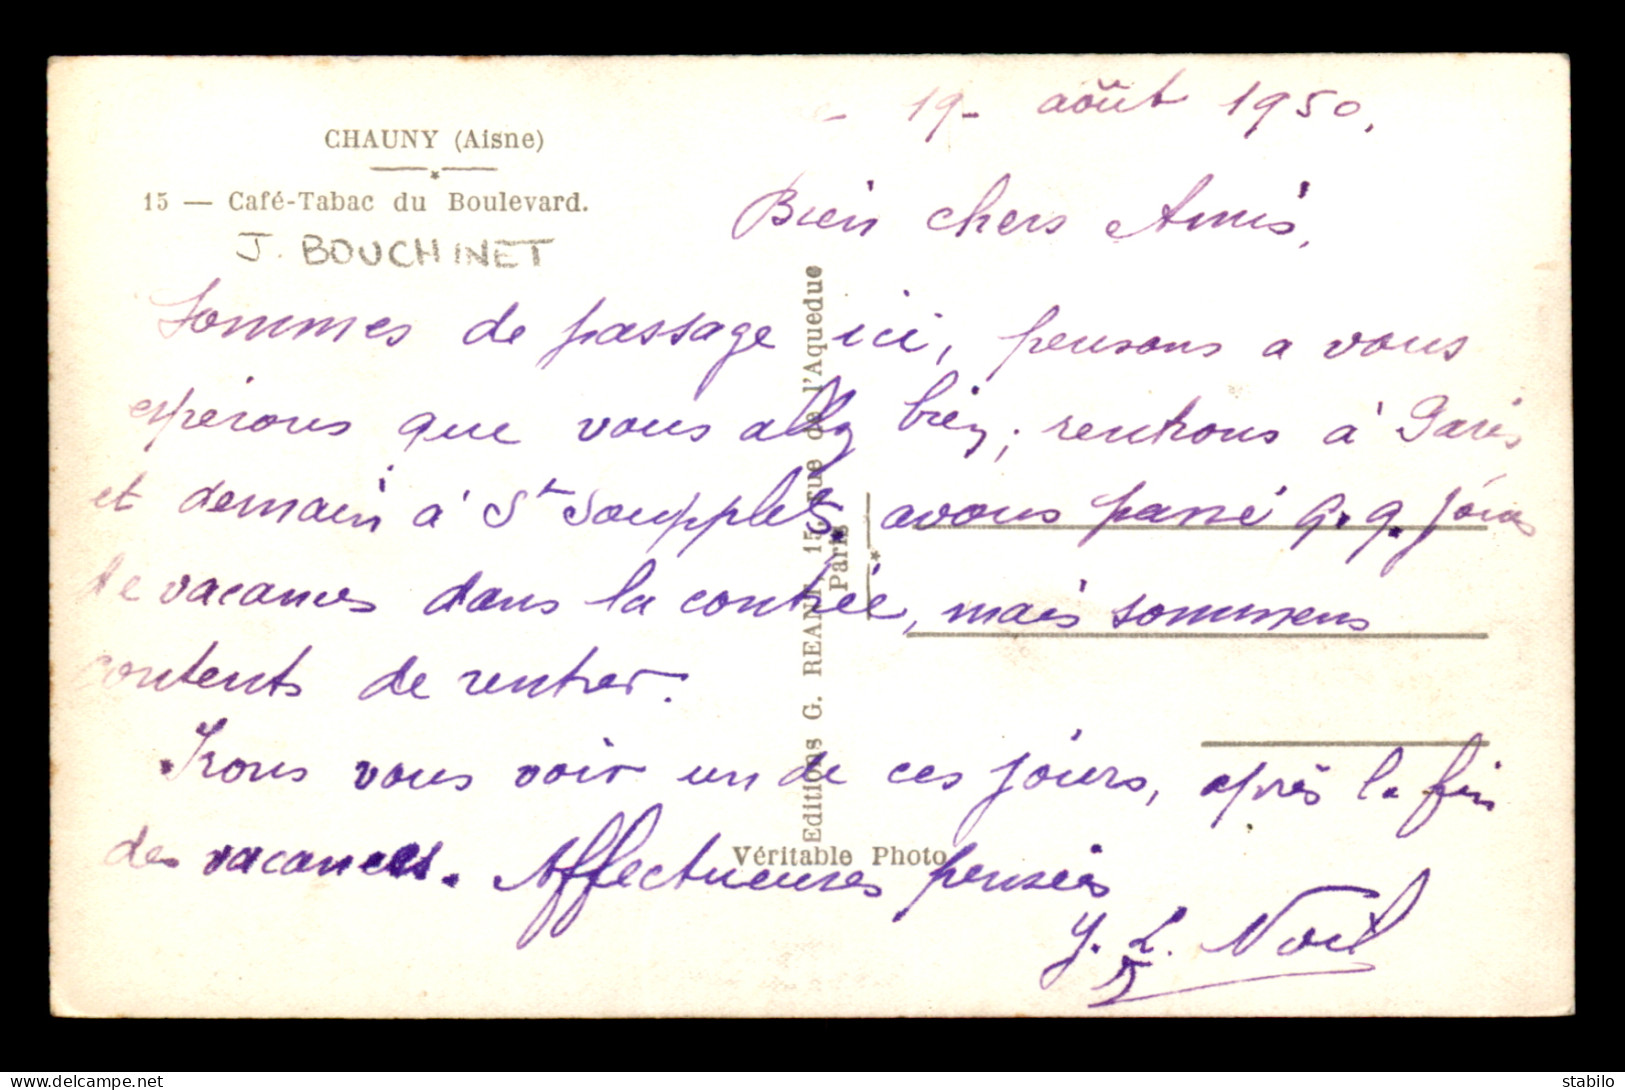 CHAUNY (Aisne)
15 — Café-Tabac du Boulevard.
J. BOUCHINET
- 19 - août 1950.
Bien chers Amis,
Sommes de passage ici, pensons a vous
espérons que vous allez bien, rentrons à Paris
et demain à St Soupplets avons passé q.q. jours
de vacances dans la contrée, mais sommens
contents de rentrer.
Irons vous voir un de ces jours, après la fin
des vacances. Affectueuses pensées
Y. L. Noil
Editions G. REANT, 15, rue de l'Aquedue
Paris
Véritable Photo
stabilo